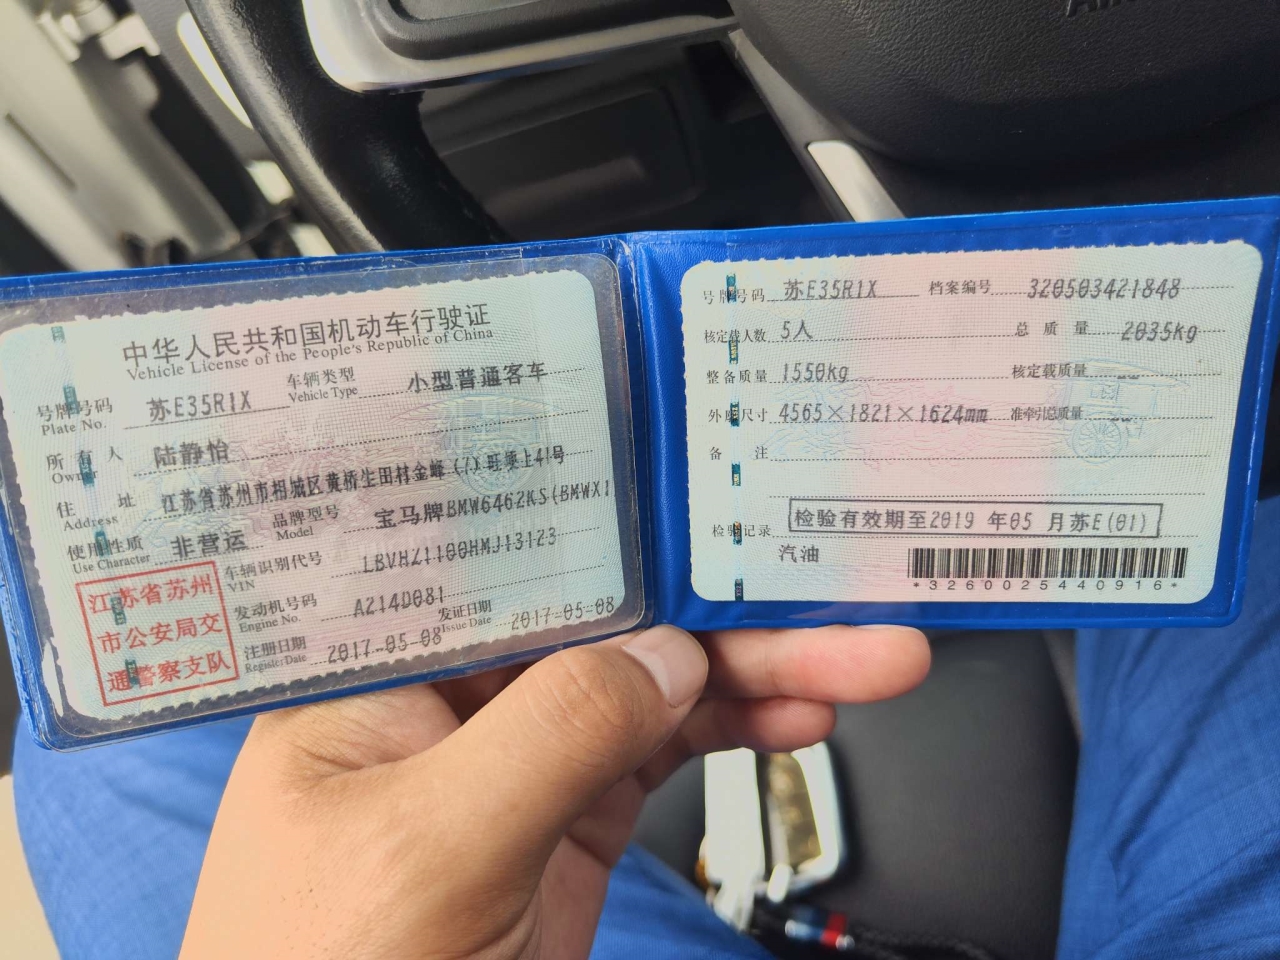 中华人民共和国机动车行驶证
Vehicle License of the People's Republic of China
号牌号码 苏E35R1X 车辆类型 小型普通客车
Plate No. Vehicle Type
所有人 陆静怡
Owner
住址 江苏省苏州市相城区黄桥生田村金峰(7)旺埂上41号
Address
使用性质 非营运 品牌型号 宝马牌BMW6462KS(BMWX1
Use Character Model
车辆识别代号 LBVHZ1100HMJ13123
VIN
发动机号码 A214D081
Engine No.
注册日期 2017-05-08 发证日期 2017-05-08
Register Date Issue Date
江苏省苏州
市公安局交
通警察支队
号牌号码 苏E35R1X 档案编号 320503421848
核定载人数 5人 总质量 2035kg
整备质量 1550kg 核定载质量 --
外廓尺寸 4565×1821×1624mm 准牵引总质量 --
备注
检验记录 检验有效期至2019 年05 月苏E(01)
汽油
*3260025440916*